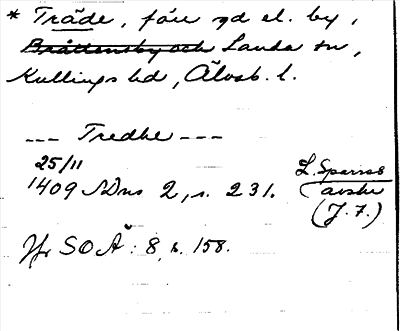 * Träde, förr gd el. by,
Bråttensby och Landa sn,
Kullings hd, Älvsb. l.
--- Tredhe ---
25/11
1409 SDns 2, s. 231. L. Sparres
avskr
(J. 7.)
Jfr SOÄ: 8, s. 158.